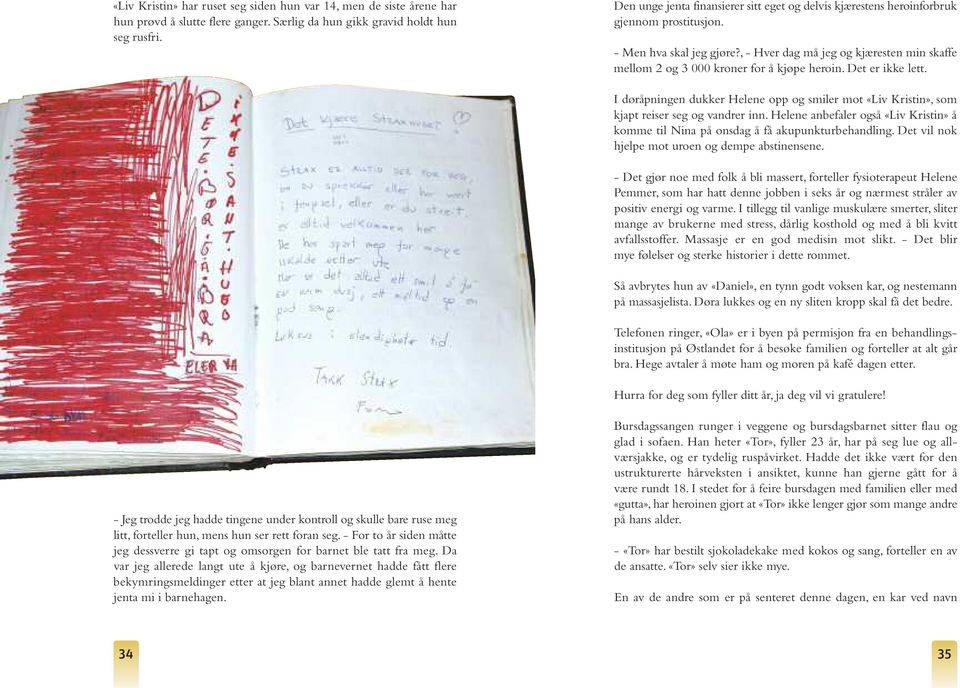 «Liv Kristin» har ruset seg siden hun var 14, men de siste årene har
hun prøvd å slutte flere ganger. Særlig da hun gikk gravid holdt hun
seg rusfri.
DET E BORGÅBRA
IKKE SANT HUGO
ELER VA
Det kjære STRAXHUSET
STRAX ER ALLTID DER FOR DEG,
om DU sprekker eller har vært
i fengsel, eller er du streit,
er alltid velkommen her
De har spart meg for mange
iskalde netter ute
Her er det alltid ett smil å få
en varm dusj, ett måltid og en
god seng.
i elendighetens tid.
TAKK STRAX
- Jeg trodde jeg hadde tingene under kontroll og skulle bare ruse meg
litt, forteller hun, mens hun ser rett foran seg. - For to år siden måtte
jeg dessverre gi tapt og omsorgen for barnet ble tatt fra meg. Da
var jeg allerede langt ute å kjøre, og barnevernet hadde fått flere
bekymringsmeldinger etter at jeg blant annet hadde glemt å hente
jenta mi i barnehagen.
34
Den unge jenta finansierer sitt eget og delvis kjærestens heroinforbruk
gjennom prostitusjon.
- Men hva skal jeg gjøre?, - Hver dag må jeg og kjæresten min skaffe
mellom 2 og 3 000 kroner for å kjøpe heroin. Det er ikke lett.
I døråpningen dukker Helene opp og smiler mot «Liv Kristin», som
kjapt reiser seg og vandrer inn. Helene anbefaler også «Liv Kristin» å
komme til Nina på onsdag å få akupunkturbehandling. Det vil nok
hjelpe mot uroen og dempe abstinensene.
- Det gjør noe med folk å bli massert, forteller fysioterapeut Helene
Pemmer, som har hatt denne jobben i seks år og nærmest stråler av
positiv energi og varme. I tillegg til vanlige muskulære smerter, sliter
mange av brukerne med stress, dårlig kosthold og med å bli kvitt
avfallsstoffer. Massasje er en god medisin mot slikt. - Det blir
mye følelser og sterke historier i dette rommet.
Så avbrytes hun av «Daniel», en tynn godt voksen kar, og nestemann
på massasjelista. Døra lukkes og en ny sliten kropp skal få det bedre.
Telefonen ringer, «Ola» er i byen på permisjon fra en behandlings-
institusjon på Østlandet for å besøke familien og forteller at alt går
bra. Hege avtaler å møte ham og moren på kafé dagen etter.
Hurra for deg som fyller ditt år, ja deg vil vi gratulere!
Bursdagssangen runger i veggene og bursdagsbarnet sitter flau og
glad i sofaen. Han heter «Tor», fyller 23 år, har på seg lue og all-
værsjakke, og er tydelig ruspåvirket. Hadde det ikke vært for den
ustrukturerte hårveksten i ansiktet, kunne han gjerne gått for å
være rundt 18. I stedet for å feire bursdagen med familien eller med
«gutta», har heroinen gjort at «Tor» ikke lenger gjør som mange andre
på hans alder.
- «Tor» har bestilt sjokolademake med kokos og sang, forteller en av
de ansatte. «Tor» selv sier ikke mye.
En av de andre som er på senteret denne dagen, en kar ved navn
35